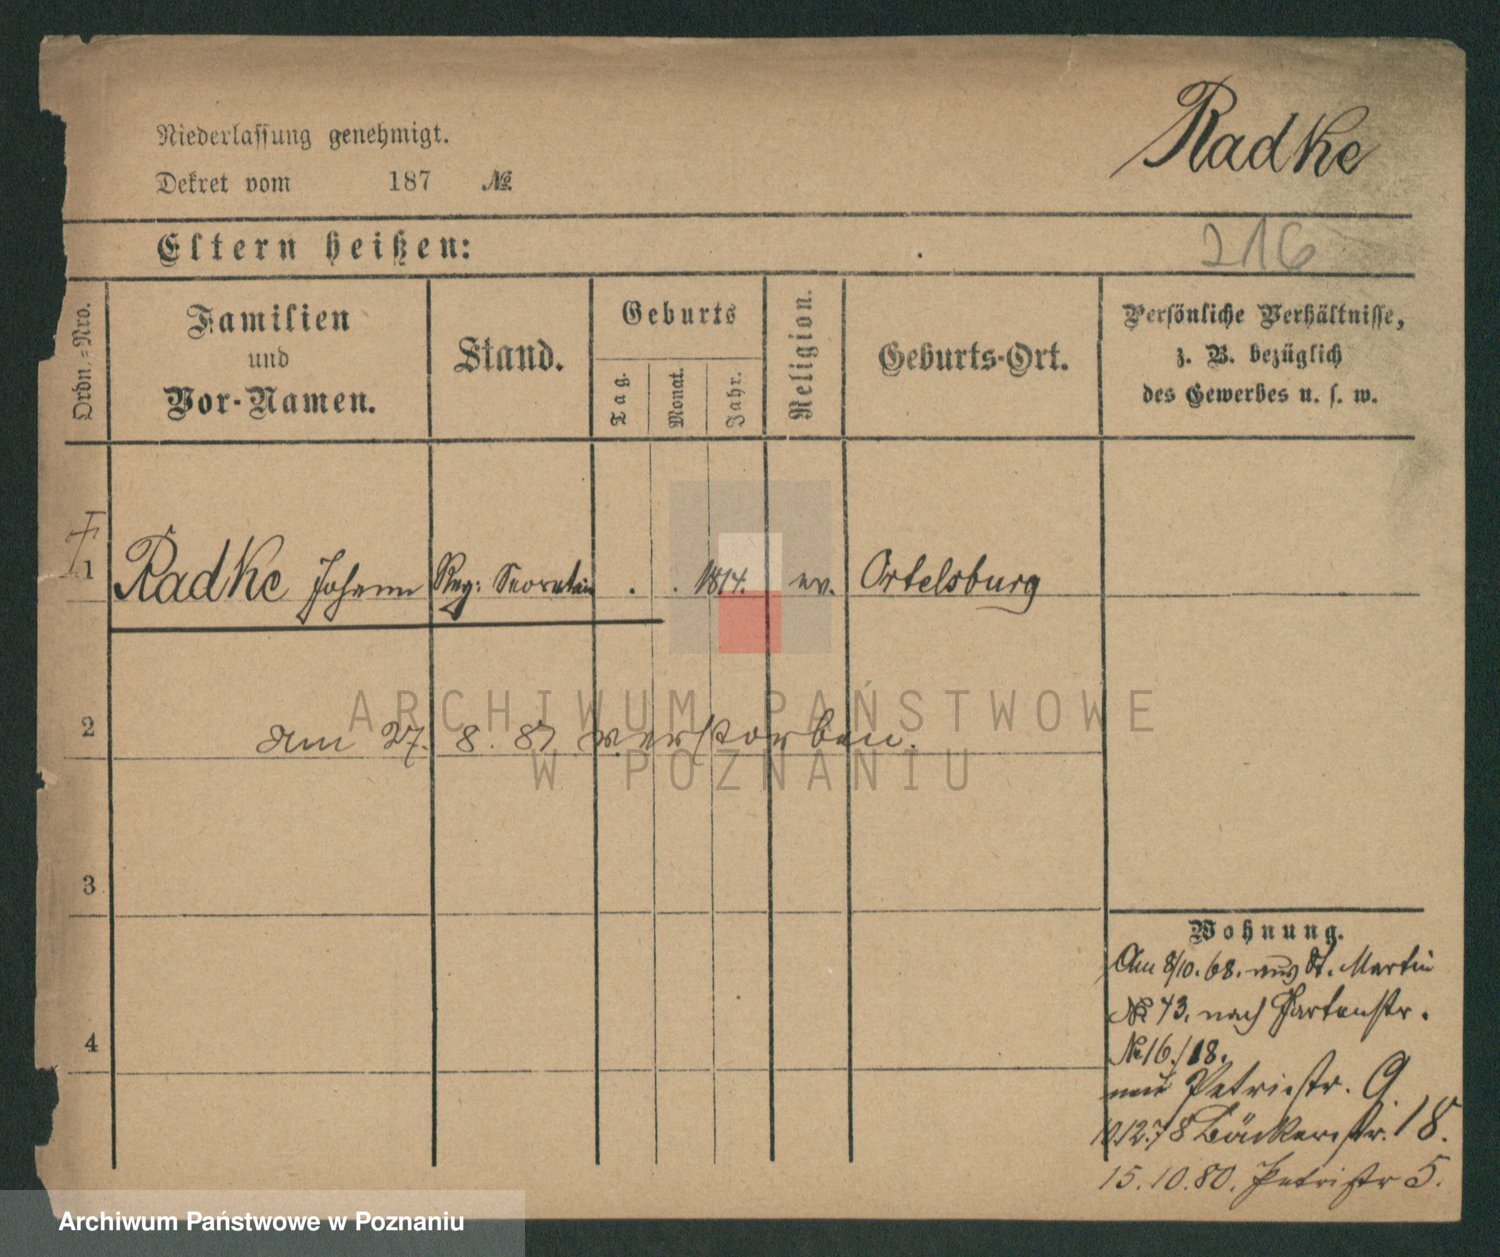 Radke
Niederlassung genehmigt.
Dekret vom 187 №
Eltern heißen:
216
Ordn.=Nro.
Familien
und
Vor-Namen.
Stand.
Geburts
Tag.
Monat.
Jahr.
Religion.
Geburts-Ort.
Persönliche Verhältnisse,
z. B. bezüglich
des Gewerbes u. s. w.
1 Radke Johann Reg: Secretair . . 1814. ev. Ortelsburg
2 am 27. 8. 87 verstorben.
3
4
Wohnung.
Am 8/10. 68. aus St. Martin
№ 43. nach Gartenstr.
№ 16./18.
Petristr. 9.
12.78 Bäckerstr. 18.
15.10.80. Petristr 5.
ARCHIWUM PAŃSTWOWE
W POZNANIU
Archiwum Państwowe w Poznaniu